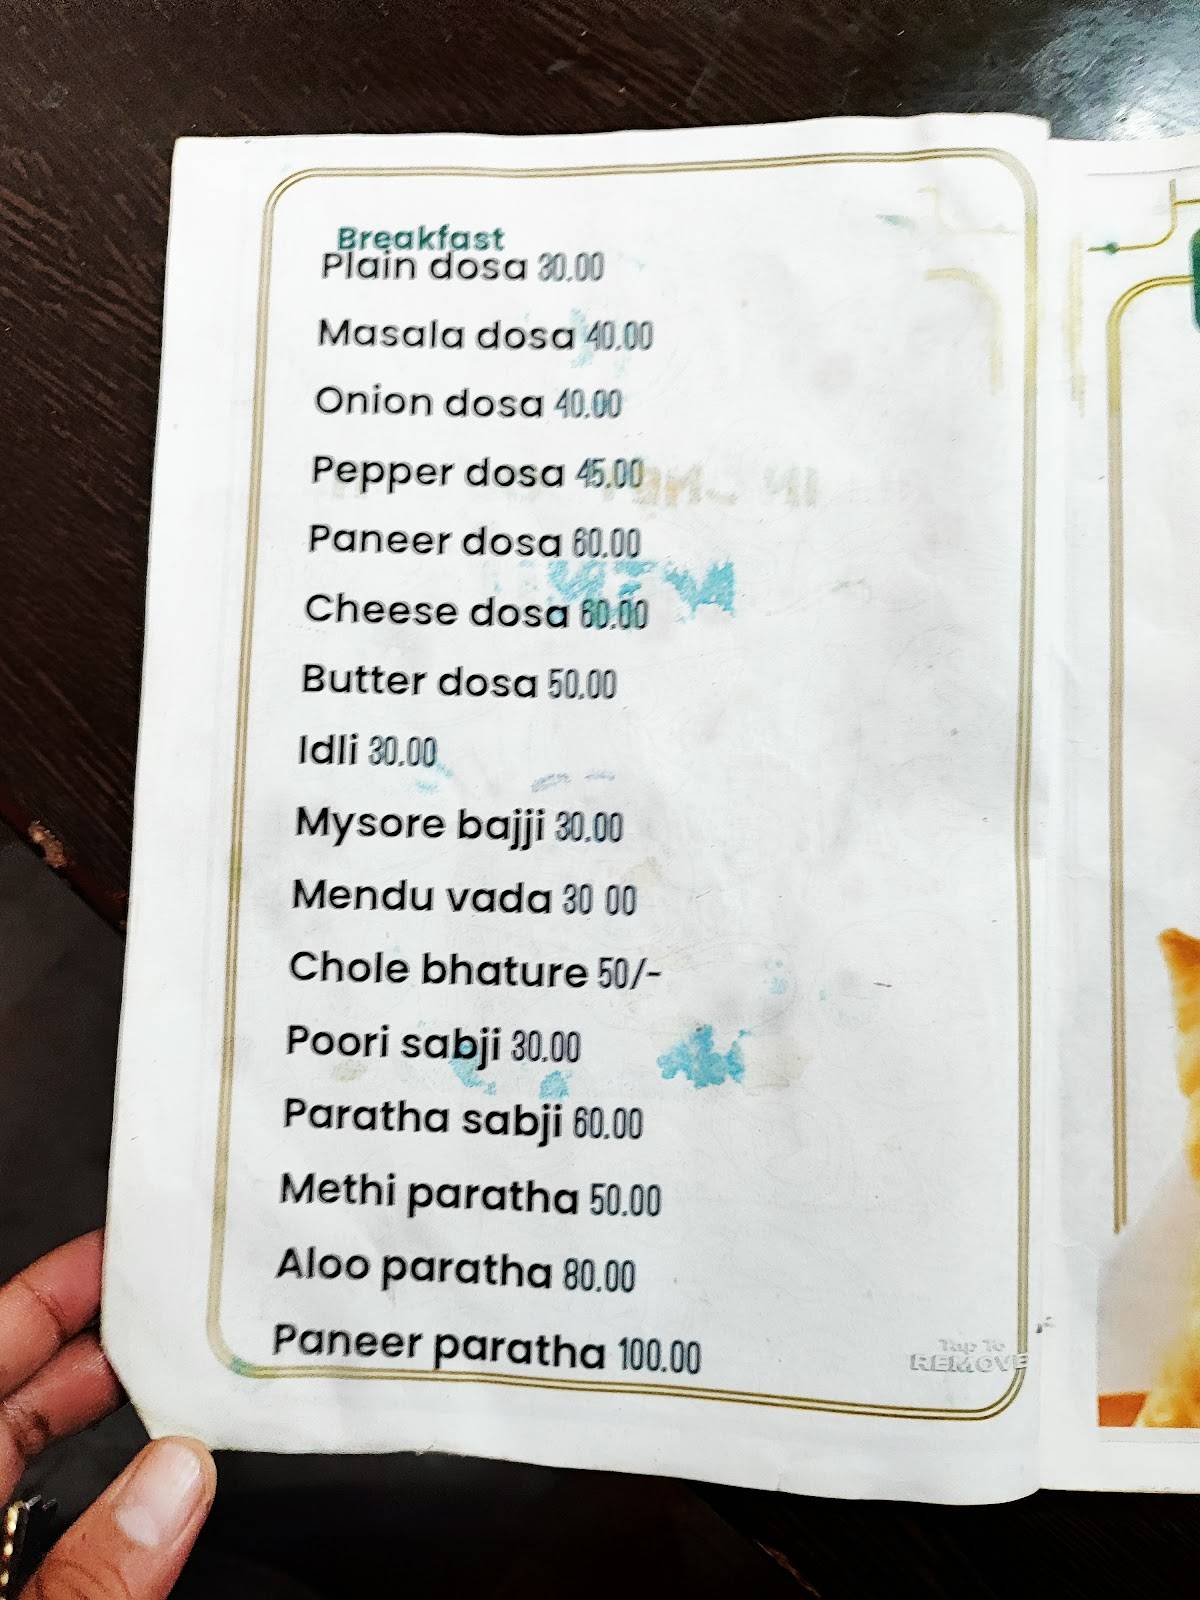 Breakfast
Plain dosa 30.00
Masala dosa 40.00
Onion dosa 40.00
Pepper dosa 45.00
Paneer dosa 60.00
Cheese dosa 60.00
Butter dosa 50.00
Idli 30.00
Mysore bajji 30.00
Mendu vada 30 00
Chole bhature 50/-
Poori sabji 30.00
Paratha sabji 60.00
Methi paratha 50.00
Aloo paratha 80.00
Paneer paratha 100.00
Tap To
REMOVE